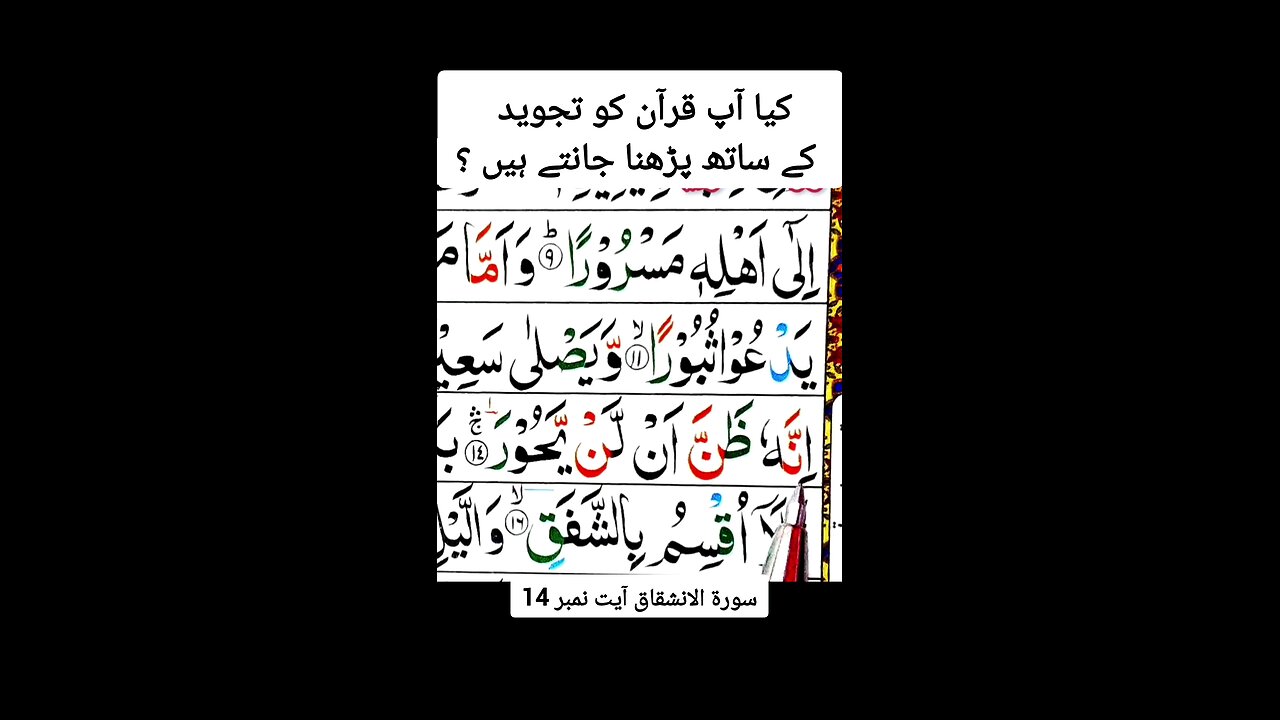 کیا آپ قرآن کو تجوید
کے ساتھ پڑھنا جانتے ہیں ؟
اِلٰۤی اَهْلِهٖ مَسْرُوْرًا ؕ ۹ وَاَمَّا مَ
یَدْعُوْا ثُبُوْرًا ۙ ۱۱ وَّیَصْلٰی سَعِیْ
اِنَّهٗ ظَنَّ اَنْ لَّنْ یَّحُوْرَ ۚۛ ۱٤ بَ
اُقْسِمُ بِالشَّفَقِ ۙ ۱٦ وَالَّیْلِ
سورۃ الانشقاق آیت نمبر 14